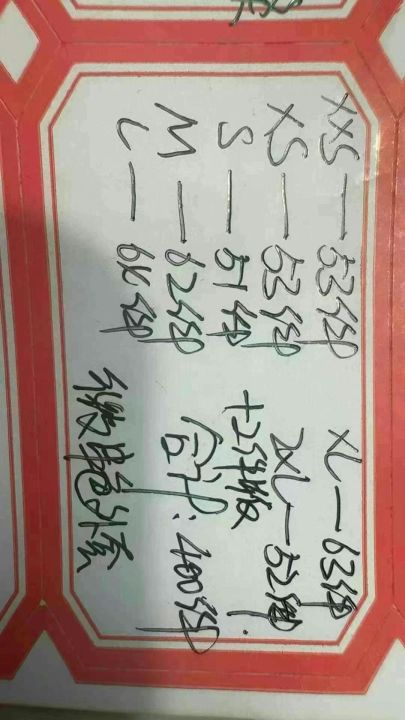 XXS — 53件 XL — 63件
XS — 53件 2XL — 52件
S — 51件 +2件版
M — 62件 合计:400件
L — 64件
单色外套